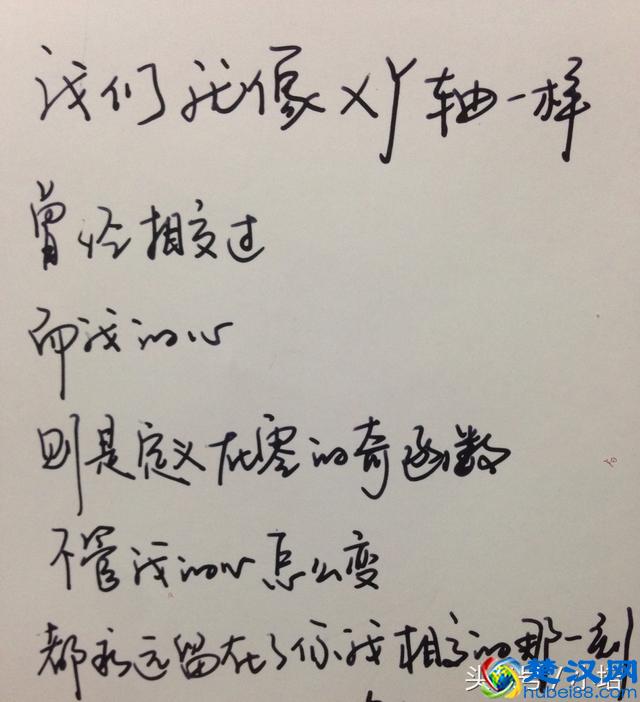 我们就像XY轴一样
曾经相交过
而我的心
则是定义在零的奇函数
不管我的心怎么变
都永远留在了你我相交的那一刻
楚汉网
hubei88.com